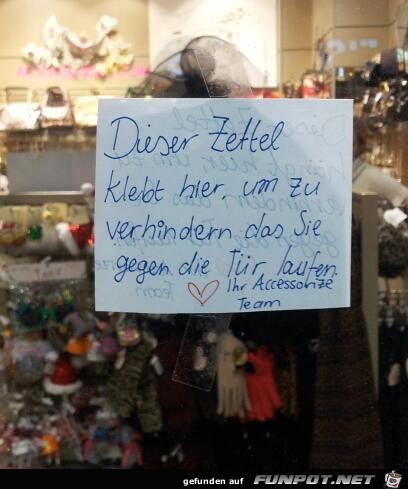 Dieser Zettel
klebt hier, um zu
verhindern das Sie
gegen die Tür laufen.
Ihr Accessorize
Team
gefunden auf FUNPOT.NET